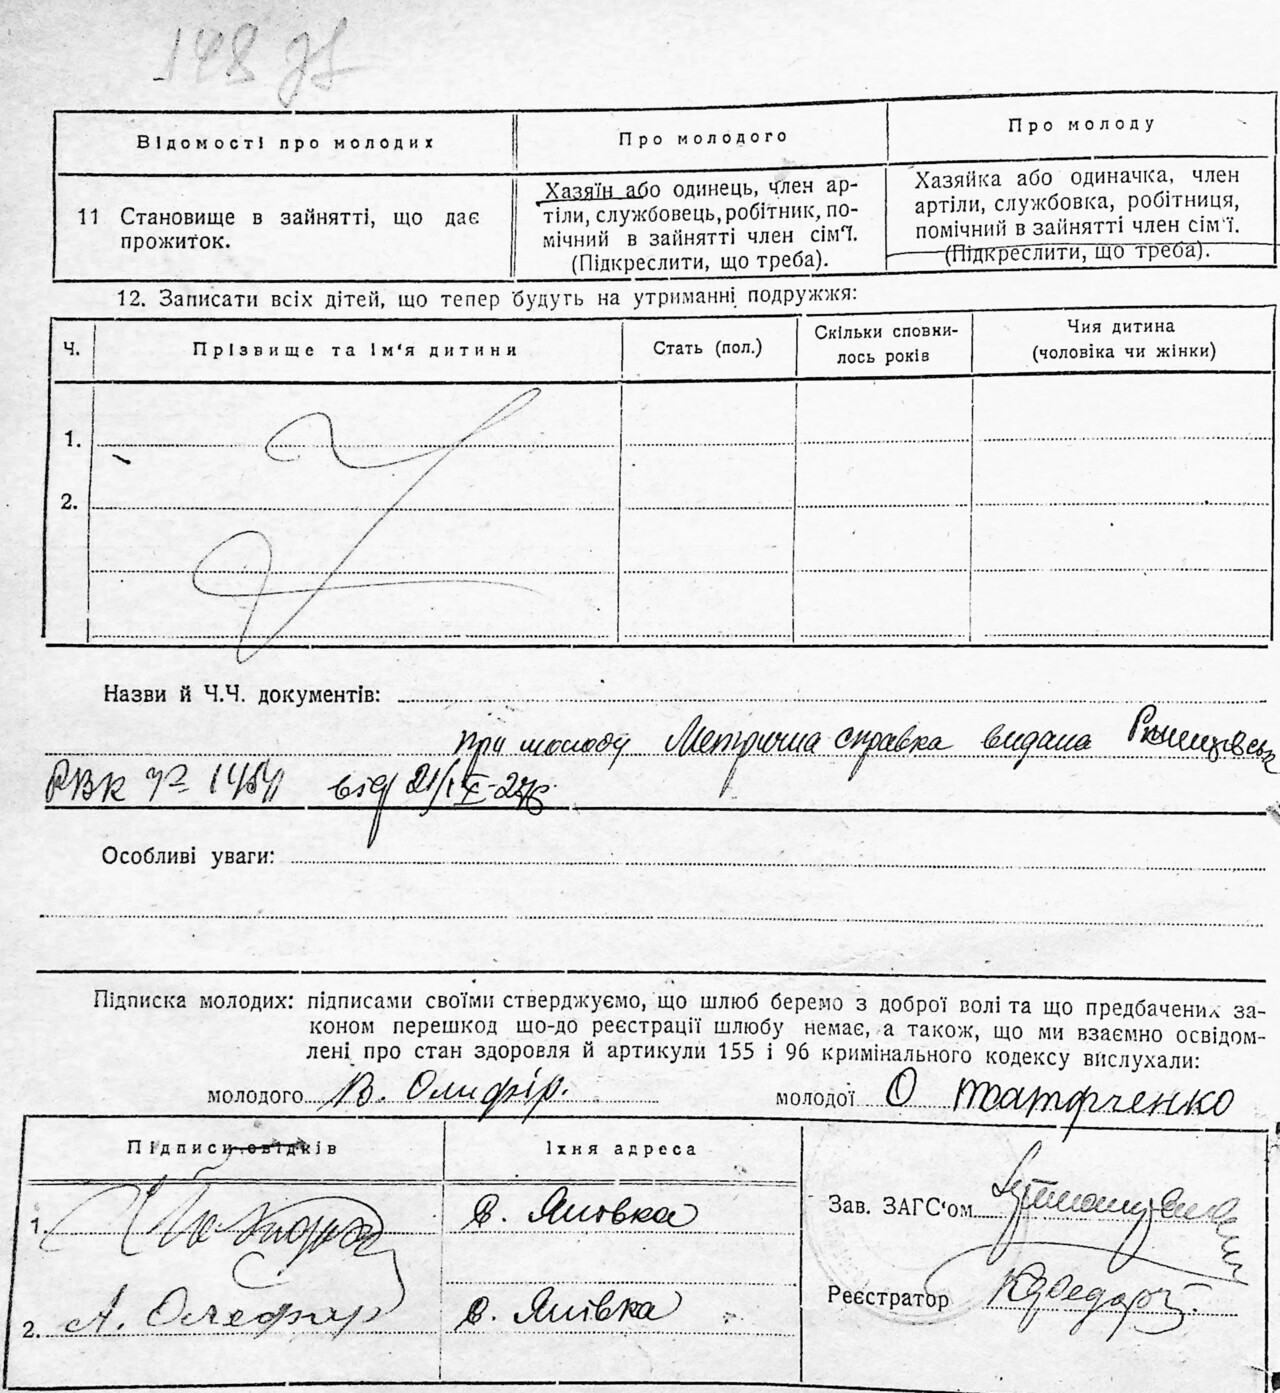 148
Відомості про молодих
Про молодого
Про молоду
11 Становище в зайнятті, що дає
прожиток.
Хазяїн або одинець, член ар-
тіли, службовець, робітник, по-
мічний в зайнятті член сім'ї.
(Підкреслити, що треба).
Хазяйка або одиначка, член
артіли, службовка, робітниця,
помічний в зайнятті член сім'ї.
(Підкреслити, що треба).
12. Записати всіх дітей, що тепер будуть на утриманні подружжя:
Ч.
Прізвище та ім'я дитини
Стать (пол.)
Скільки сповни-
лось років
Чия дитина
(чоловіка чи жінки)
1.
2.
Назви й Ч.Ч. документів:
при молоду Метрична справка видана
РВК від 21/IX-27
Особливі уваги:
Підписка молодих: підписами своїми стверджуємо, що шлюб беремо з доброї волі та що предбачених за-
коном перешкод що-до реєстрації шлюбу немає, а також, що ми взаємно освідом-
лені про стан здоровля й артикули 155 і 96 кримінального кодексу вислухали:
молодого В. Олифір. молодої О
Підписи свідків
Їхня адреса
1.
с. Яновка
Зав. ЗАГС'ом
Реєстратор
2. А. Олефир
с. Янівка